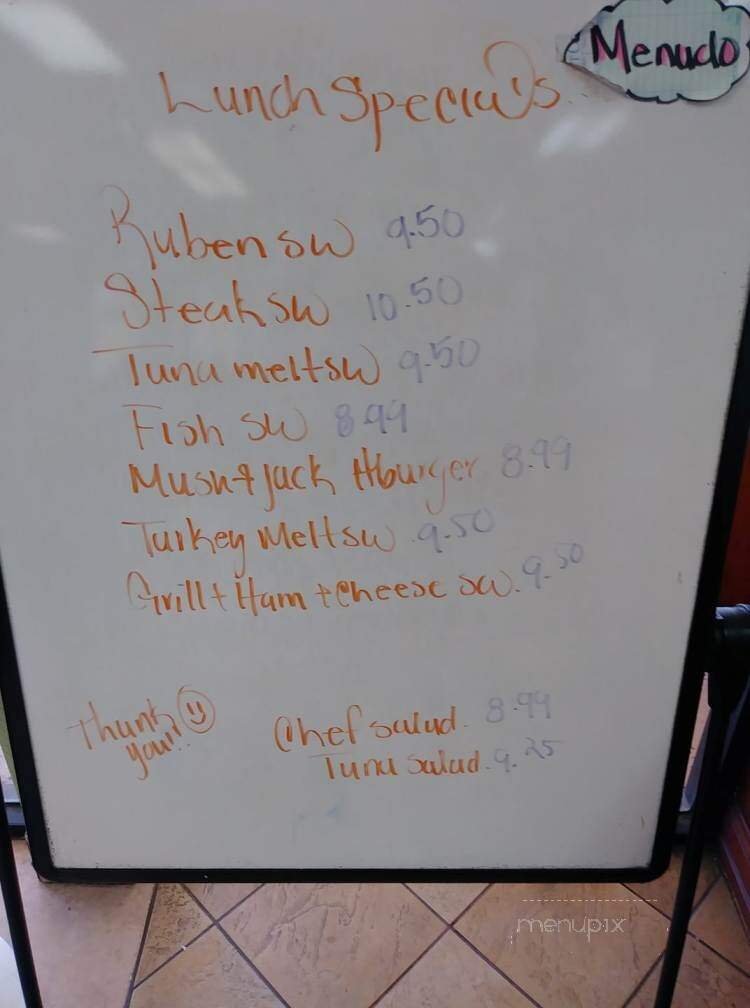 Menudo
Lunch Specials
Ruben SW 9.50
Steak SW 10.50
Tuna melt SW 9.50
Fish SW 8.99
Mush + Jack Hburger 8.99
Turkey Melt SW 9.50
Grill + Ham + Cheese SW. 9.50
Thank you!!
Chef Salad. 8.99
Tuna Salad. 9.25
menupix